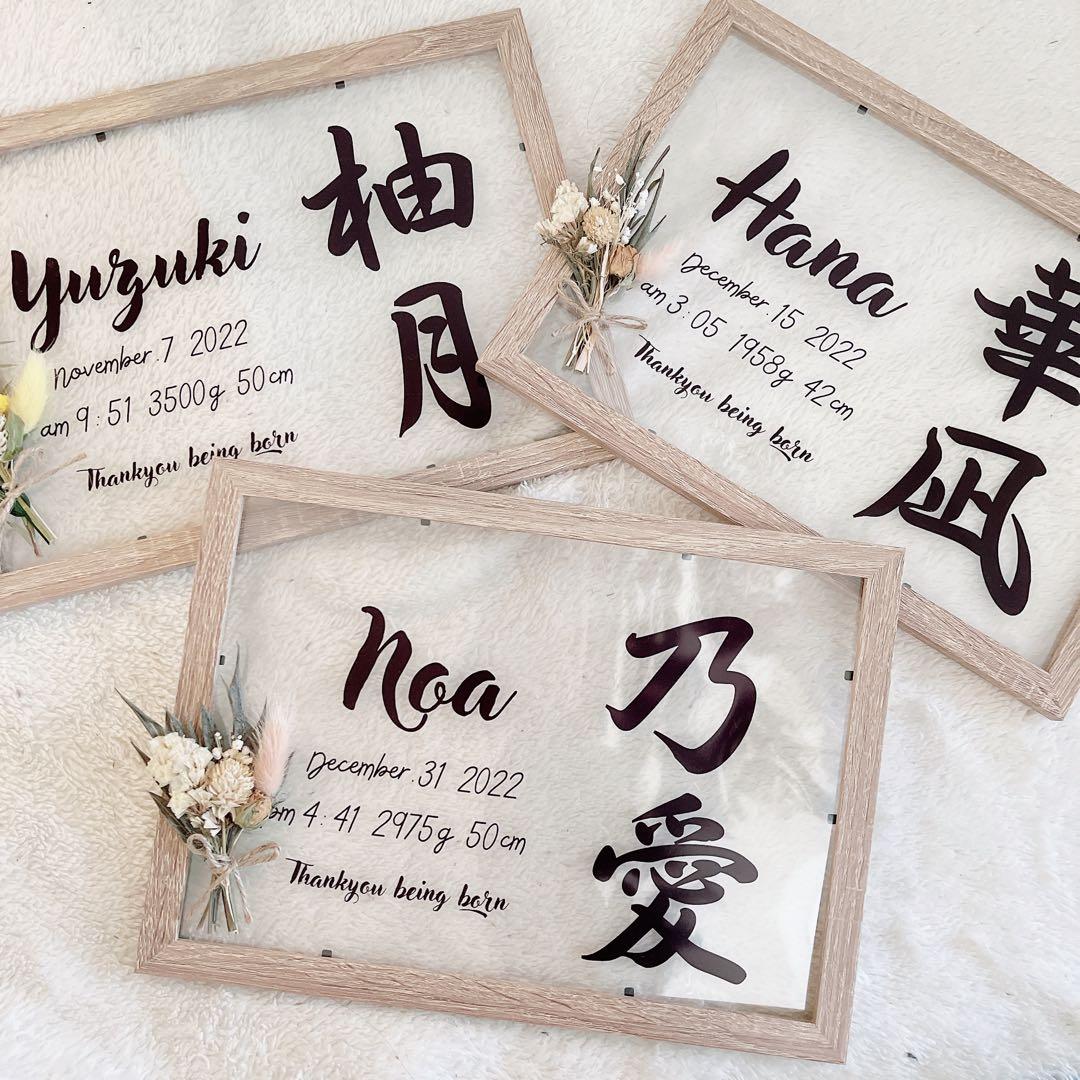 Yuzuki
November.7 2022
am 9:51 3500g 50cm
Thankyou being born
柚月
Hana
December.15 2022
am 3:05 1958g 42cm
Thankyou being born
華凪
Noa
December.31 2022
pm 4:41 2975g 50cm
Thankyou being born
乃愛